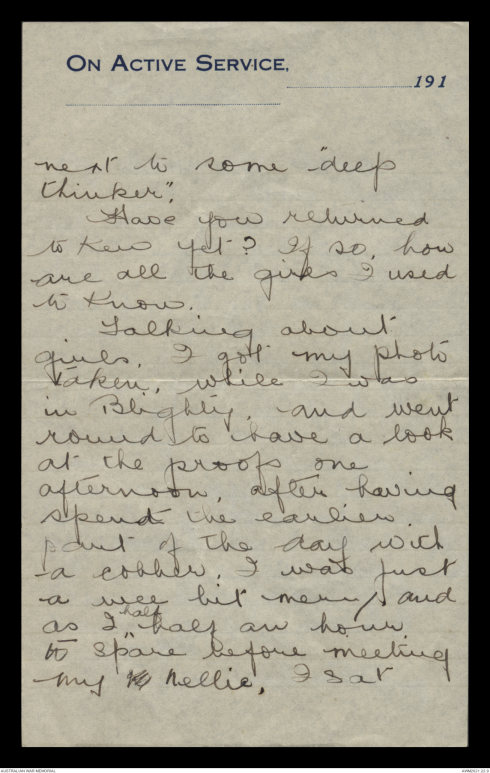 ON ACTIVE SERVICE,
191
next to some "deep
thinker".
Have you returned
to Kew yet? If so, how
are all the girls I used
to know.
Talking about
girls, I got my photo
taken, while I was
in Blighty, and went
round to have a look
at the proofs one
afternoon, after having
spend the earlier
part of the day with
a cobber, I was just
a wee bit merry, and
as I half half an hour
to spare before meeting
my Nellie, I sat
AUSTRALIAN WAR MEMORIAL